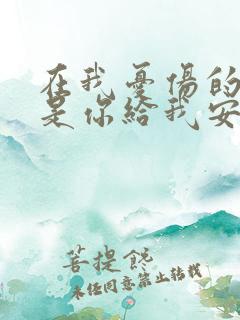 在我憂傷的
是你給我安
菩提馋
未经同意禁止转载